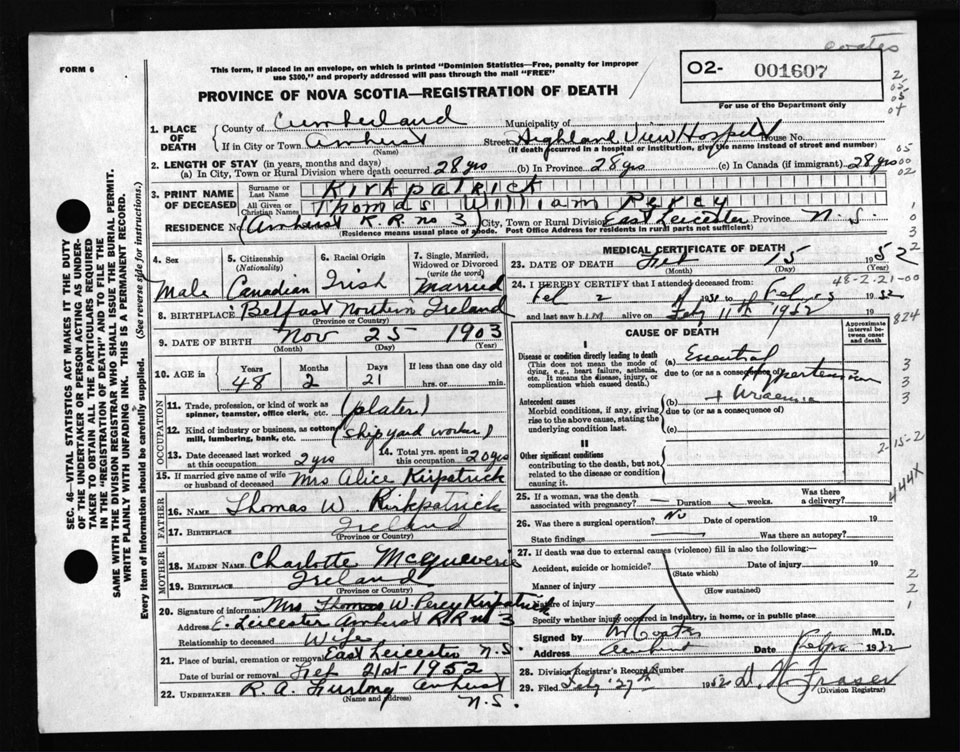 Coates
FORM 6
This form, if placed in an envelope, on which is printed "Dominion Statistics—Free, penalty for improper
use $300," and properly addressed will pass through the mail "FREE"
O2- 001607
PROVINCE OF NOVA SCOTIA—REGISTRATION OF DEATH
For use of the Department only
1. PLACE OF DEATH
County of Cumberland Municipality of
If in City or Town Amherst Street Highland View Hospital House No.
(Name) (If death occurred in a hospital or institution, give the name instead of street and number)
2. LENGTH OF STAY (in years, months and days)
(a) In City, Town or Rural Division where death occurred 28 yrs (b) In Province 28 yrs (c) In Canada (if immigrant) 28 yrs
3. PRINT NAME OF DECEASED
Surname or Last Name KIRKPATRICK
All Given or Christian Names Thomas William Percy
RESIDENCE No. (Amherst R.R. no 3) City, Town or Rural Division East Leicester Province N.S.
(Residence means usual place of abode. Post Office Address for residents in rural parts not sufficient)
4. Sex Male
5. Citizenship (Nationality) Canadian
6. Racial Origin Irish
7. Single, Married, Widowed or Divorced (write the word) Married
8. BIRTHPLACE Belfast Nortern Ireland
(Province or Country)
9. DATE OF BIRTH Nov 25 1903
(Month) (Day) (Year)
10. AGE in Years Months Days If less than one day old
48 2 21 hrs. or min.
OCCUPATION
11. Trade, profession, or kind of work as spinner, teamster, office clerk, etc. (plater)
12. Kind of industry or business, as cotton mill, lumbering, bank, etc. (shipyard worker)
13. Date deceased last worked at this occupation 2 yrs
14. Total yrs. spent in this occupation 20 yrs
15. If married give name of wife or husband of deceased Mrs Alice Kirpatrick
FATHER
16. NAME Thomas W. Kirkpatrick
17. BIRTHPLACE Ireland
(Province or Country)
MOTHER
18. MAIDEN NAME Charlotte
19. BIRTHPLACE Ireland
(Province or Country)
20. Signature of informant Mrs Thomas W. Percy Kirpatrick
Address E. Leicester Amherst R R no 3
Relationship to deceased Wife
21. Place of burial, cremation or removal East Leicester N.S.
Date of burial or removal Feb 21st 1952
22. UNDERTAKER R. A. Furlong Amherst N.S.
(Name and address)
MEDICAL CERTIFICATE OF DEATH
23. DATE OF DEATH Feb 15 1952
(Month) (Day) (Year)
48-2-21-00
24. I HEREBY CERTIFY that I attended deceased from:
Feb 2 to 1952
and last saw him alive on Feby 11th 1952
824
CAUSE OF DEATH
Approximate interval between onset and death
I
Disease or condition directly leading to death
(This does not mean the mode of dying, e.g., heart failure, asthenia, etc. It means the disease, injury, or complication which caused death.)
(a) Essential Hypertension
due to (or as a consequence of)
Antecedent causes
Morbid conditions, if any, giving rise to the above cause, stating the underlying condition last.
(b) + Uraemia
due to (or as a consequence of)
(c)
II
Other significant conditions
contributing to the death, but not related to the disease or condition causing it.
2-15-2
444X
25. If a woman, was the death associated with pregnancy? Duration weeks. Was there a delivery?
26. Was there a surgical operation? No Date of operation 19
State findings Was there an autopsy?
27. If death was due to external causes (violence) fill in also the following:—
Accident, suicide or homicide? Date of injury 19
(State which)
Manner of injury
(How sustained)
Nature of injury
Specify whether injury occurred in industry, in home, or in public place
Signed by M.D.
Address Amherst Date 1952
28. Division Registrar's Record Number
29. Filed Feby 27th 1952 D. H. Fraser
(Division Registrar)
SEC. 46—VITAL STATISTICS ACT MAKES IT THE DUTY
OF THE UNDERTAKER OR PERSON ACTING AS UNDERTAKER
TO OBTAIN ALL THE PARTICULARS REQUIRED
IN THE "REGISTRATION OF DEATH" AND TO FILE THE
SAME WITH THE DIVISION REGISTRAR WHO SHALL ISSUE THE BURIAL PERMIT.
WRITE PLAINLY WITH UNFADING INK. THIS IS A PERMANENT RECORD.
Every item of information should be carefully supplied. (See reverse side for instructions.)